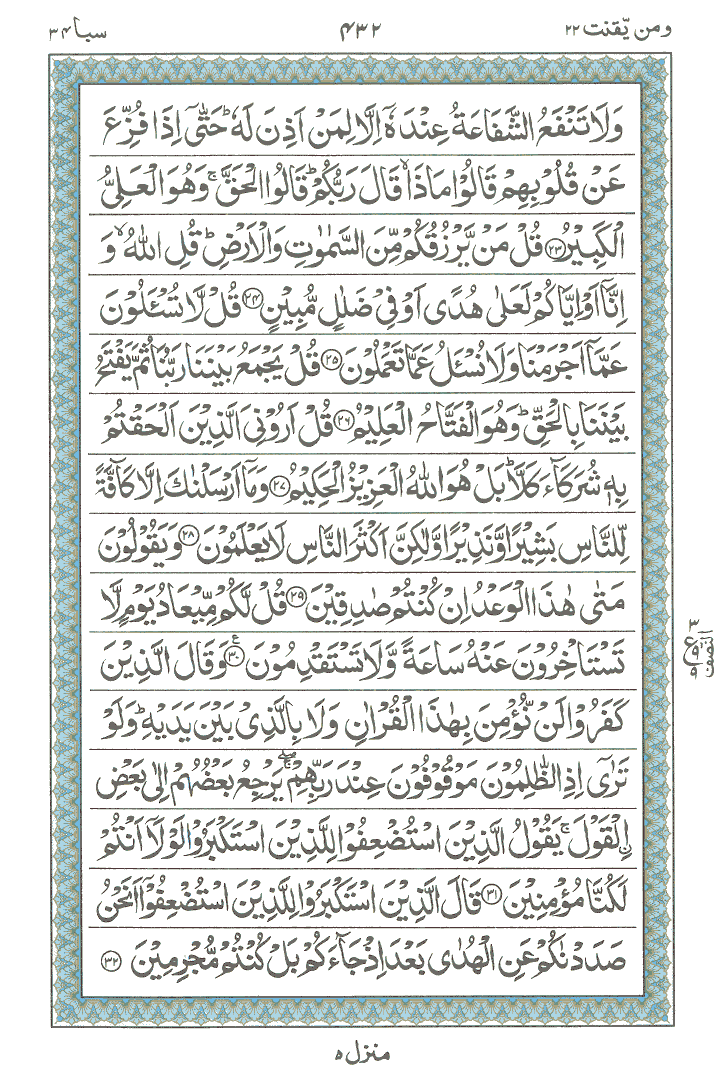 ومن يّقنت ٢٢
٤٣٢
سبا ٣٤
وَلَا تَنْفَعُ الشَّفَاعَةُ عِنْدَهٗۤ اِلَّا لِمَنْ اَذِنَ لَهٗ ؕ حَتّٰۤى اِذَا فُزِّعَ
عَنْ قُلُوْبِهِمْ قَالُوْا مَاذَا ۙ قَالَ رَبُّكُمْ ؕ قَالُوا الْحَقَّ ۚ وَهُوَ الْعَلِىُّ
الْكَبِيْرُ ﴿٢٣﴾ قُلْ مَنْ يَّرْزُقُكُمْ مِّنَ السَّمٰوٰتِ وَالْاَرْضِ ؕ قُلِ اللّٰهُ ۙ وَ
اِنَّاۤ اَوْ اِيَّاكُمْ لَعَلٰى هُدًى اَوْ فِىْ ضَلٰلٍ مُّبِيْنٍ ﴿٢٤﴾ قُلْ لَّا تُسْـَٔلُوْنَ
عَمَّاۤ اَجْرَمْنَا وَلَا نُسْـَٔلُ عَمَّا تَعْمَلُوْنَ ﴿٢٥﴾ قُلْ يَجْمَعُ بَيْنَنَا رَبُّنَا ثُمَّ يَفْتَحُ
بَيْنَنَا بِالْحَقِّ ؕ وَهُوَ الْفَتَّاحُ الْعَلِيْمُ ﴿٢٦﴾ قُلْ اَرُوْنِىَ الَّذِيْنَ اَلْحَقْتُمْ
بِهٖ شُرَكَآءَ كَلَّا ؕ بَلْ هُوَ اللّٰهُ الْعَزِيْزُ الْحَكِيْمُ ﴿٢٧﴾ وَمَاۤ اَرْسَلْنٰكَ اِلَّا كَآفَّةً
لِّلنَّاسِ بَشِيْرًا وَّنَذِيْرًا وَّلٰكِنَّ اَكْثَرَ النَّاسِ لَا يَعْلَمُوْنَ ﴿٢٨﴾ وَيَقُوْلُوْنَ
مَتٰى هٰذَا الْوَعْدُ اِنْ كُنْتُمْ صٰدِقِيْنَ ﴿٢٩﴾ قُلْ لَّكُمْ مِّيْعَادُ يَوْمٍ لَّا
تَسْتَاْخِرُوْنَ عَنْهُ سَاعَةً وَّلَا تَسْتَقْدِمُوْنَ ﴿٣٠﴾ ع وَقَالَ الَّذِيْنَ
كَفَرُوْا لَنْ نُّؤْمِنَ بِهٰذَا الْقُرْاٰنِ وَلَا بِالَّذِىْ بَيْنَ يَدَيْهِ ؕ وَلَوْ
تَرٰٓى اِذِ الظّٰلِمُوْنَ مَوْقُوْفُوْنَ عِنْدَ رَبِّهِمْ ۖۚ يَرْجِعُ بَعْضُهُمْ اِلٰى بَعْضِ
ۨالْقَوْلَ ۚ يَقُوْلُ الَّذِيْنَ اسْتُضْعِفُوْا لِلَّذِيْنَ اسْتَكْبَرُوْا لَوْلَاۤ اَنْتُمْ
لَكُنَّا مُؤْمِنِيْنَ ﴿٣١﴾ قَالَ الَّذِيْنَ اسْتَكْبَرُوْا لِلَّذِيْنَ اسْتُضْعِفُوْۤا اَنَحْنُ
صَدَدْنٰكُمْ عَنِ الْهُدٰى بَعْدَ اِذْ جَآءَكُمْ بَلْ كُنْتُمْ مُّجْرِمِيْنَ ﴿٣٢﴾
٣
ع
٩
٩
النصف
منزل ٥